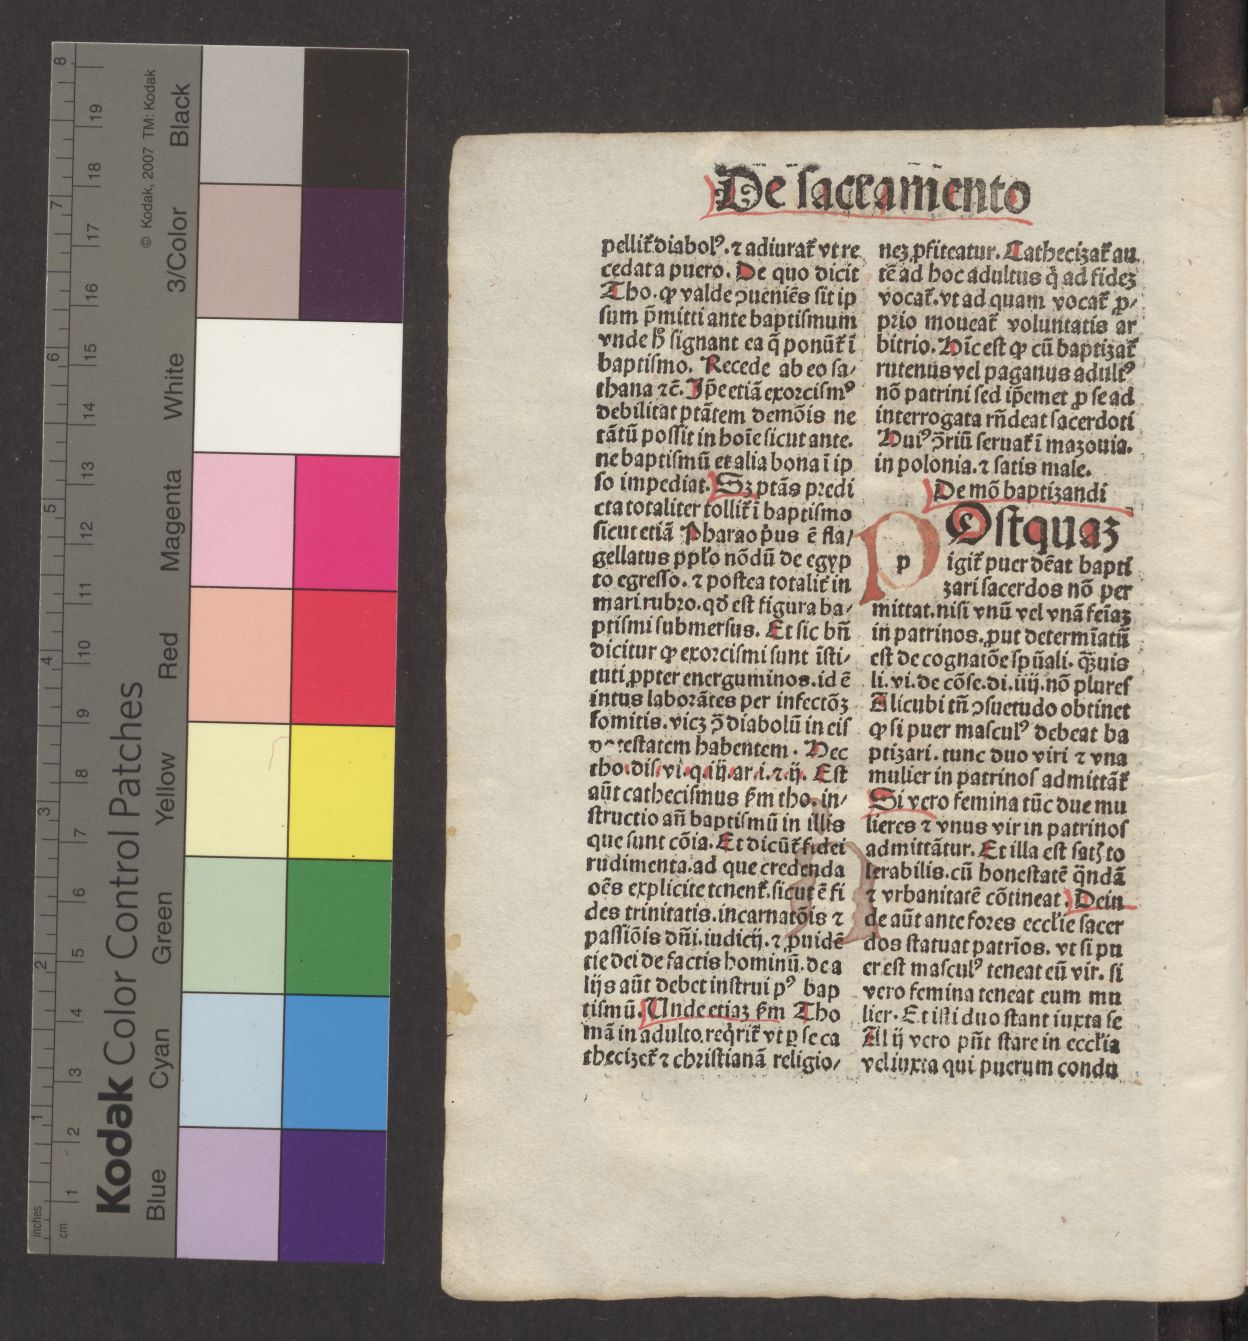 De sacramento
pellit᷑ diabolꝰ. ⁊ adiurat᷑ vt re
cedat a puero. De quo dicit
Tho. ꝙ valde ↄueniẽs sit ip
sum p̃mitti ante baptismum
vnde hꝰ signant ea q̃ ponũt᷑ ĩ
baptismo. Recede ab eo sa/
thana ⁊c̃. Ip̃e etiã exorcismꝰ
debilitat ptãtem demõis ne
tãtũ possit in hoĩe sicut ante.
ne baptismũ et alia bona ĩ ip
so impediat. Sꝫ ptãs predi
cta totaliter tollit᷑ ĩ baptismo
sicut etiã Pharao p̾us ẽ fla/
gellatus ppl̃o nõdũ de egyp
to egresso. ⁊ postea totalit᷑ in
mari rubro. qď est figura ba/
ptismi submersus. Et sic bñ
dicitur ꝙ exorcismi sunt ĩsti/
tuti ꝓpter energuminos. id ẽ
intus laborãtes per infectõꝫ
fomitis. vicꝫ ↄ̃ diabolũ in eis
potestatem habentem. Hec
tho. dis. vi. q. iij. ar. i. ⁊. ij. Est
aũt cathecismus ẜm tho. in/
structio añ baptismũ in illis
que sunt cõia. Et dicũt᷑ fidei
rudimenta. ad que credenda
oẽs explicite tenent᷑. sicut ẽ fi
des trinitatis. incarnatõis ⁊
passiõis dñi. iudicij. ⁊ ꝓuidẽ
tie dei de factis hominũ. de a
lijs aũt debet instrui pꝰ bap
tismũ. Unde etiaꝫ ẜm Tho
mã in adulto. reqͥrit᷑ vt ꝑ se ca
thecizet᷑ ⁊ christianã religio/
neꝫ ꝓfiteatur. Cathecizat᷑ au
tẽ ad hoc adultus q̃ ad fideꝫ
vocat᷑. vt ad quam vocat᷑ ꝓ/
prio moueat᷑ voluntatis ar
bitrio. Hĩc est ꝙ cũ baptizat᷑
rutenus vel paganus adultꝰ
nõ patrini sed ip̃emet ꝓ se ad
interrogata rñdeat sacerdoti
Huiꝰ ↄ̃riũ seruat᷑ ĩ mazouia.
in polonia. ⁊ satis male.
De mõ baptizandi
P
p
Ostquaꝫ
igit᷑ puer dẽat bapti
zari sacerdos nõ per
mittat. nisi vnũ vel vnã feĩaꝫ
in patrinos. ꝓut determĩatũ
est de cognatõe spũali. q̃uis
li. vi. de cõse. di. iiij. nõ plures
Alicubi tñ ↄsuetudo obtinet
ꝙ si puer masculꝰ debeat ba
ptizari. tunc duo viri ⁊ vna
mulier in patrinos admittãt᷑
Si vero femina tũc due mu
lieres ⁊ vnus vir in patrinos
admittãtur. Et illa est satꝭ to
lerabilis. cũ honestatẽ q̃ndã
⁊ vrbanitatẽ cõtineat. Dein
de aũt ante fores eccl̃ie sacer
dos statuat patrĩos. vt si pu
er est masculꝰ teneat eũ vir. si
vero femina teneat eum mu
lier. Et isti duo stant iuxta se
Al ij vero pñt stare in eccl̃ia
vel iuxta qui puerum condu
Kodak Color Control Patches
© Kodak, 2007 TM: Kodak
Blue Cyan Green Yellow Red Magenta White 3/Color Black
inches 1 2 3 4 5 6 7 8
cm 1 2 3 4 5 6 7 8 9 10 11 12 13 14 15 16 17 18 19